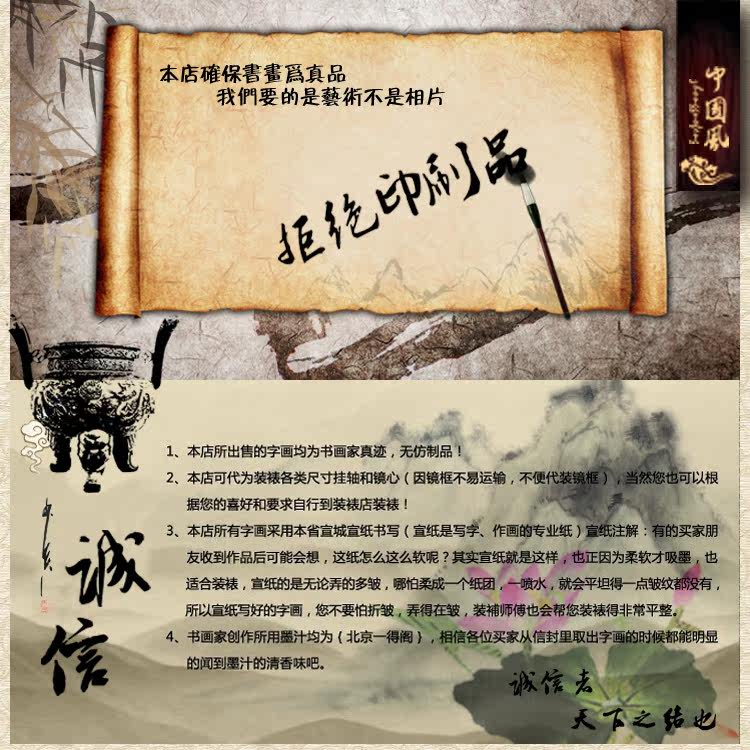 本店確保書畫爲真品
我們要的是藝術不是相片
中国風
拒绝印刷品
1、本店所出售的字画均为书画家真迹，无仿制品！
2、本店可代为装裱各类尺寸挂轴和镜心（因镜框不易运输，不便代装镜框），当然您也可以根
据您的喜好和要求自行到装裱店装裱！
3、本店所有字画采用本省宣城宣纸书写（宣纸是写字、作画的专业纸）宣纸注解：有的买家朋
友收到作品后可能会想，这纸怎么这么软呢？其实宣纸就是这样，也正因为柔软才吸墨，也
适合装裱，宣纸的是无论弄的多皱，哪怕柔成一个纸团，一喷水，就会平坦得一点皱纹都没有，
所以宣纸写好的字画，您不要怕折皱，弄得在皱，装補师傅也会帮您装裱得非常平整。
4、书画家创作所用墨汁均为｛北京一得阁｝，相信各位买家从信封里取出字画的时候都能明显
的闻到墨汁的清香味吧。
誠信
诚信者
天下之结也